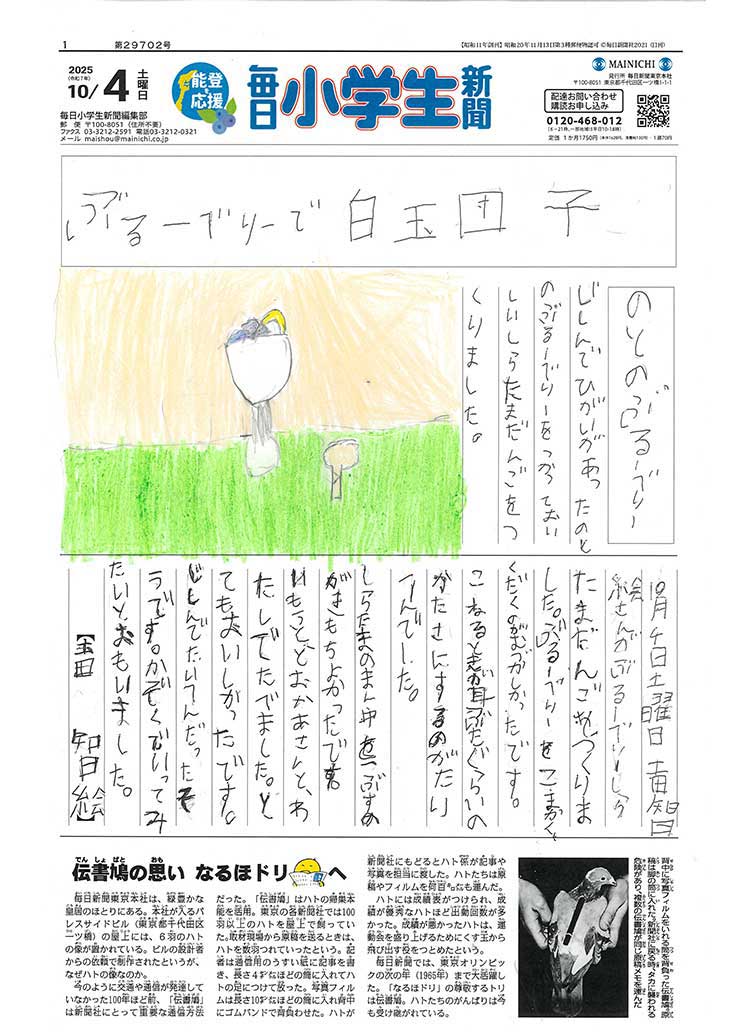 1
第29702号
【昭和11年創刊】昭和20年11月13日第3種郵便物認可 ©毎日新聞社2021 (日刊)
2025
(令和7年)
10/4
土曜日
能登
応援
毎日小学生新聞
MAINICHI
発行所 毎日新聞東京本社
〒100-8051 東京都千代田区一ツ橋1-1-1
毎日小学生新聞編集部
郵便 〒100-8051(住所不要)
ファクス 03-3212-2591 電話03-3212-0321
メール maishou@mainichi.co.jp
配達お問い合わせ
購読お申し込み
0120-468-012
定価 1か月1750円
1部70円
ぶるーべりーで白玉団子
のとのぶるーべりー
じしんでひがいがあったのと
のぶるーべりーをつかっておい
しいしらたまだんごをつ
くりました。
10月4日土曜日
絵さんがぶるーべりーしら
たまだんごをつくりま
した。ぶるーべりーをこまかく
くだくのがむずかしかったです。
こねるときが耳たぶぐらいの
かたさにするのがたい
へんでした。
しらたまのまん中をつぶすの
がきもちよかったです。
いもうととおかあさんと、わ
たしでたべました。と
てもおいしかったです。
じしんでたいへんだったそ
うです。かぞくでいってみ
たいとおもいました。
知日絵】
伝書鳩の思い なるほドリへ
でんしょばと
おも
毎日新聞東京本社は、緑豊かな
皇居のほとりにある。本社が入るパ
レスサイドビル(東京都千代田区
一ツ橋)の屋上には、6羽のハト
の像が置かれている。ビルの設計者
からの依頼で制作されたというが、
なぜハトの像なのか。
今のように交通や通信が発達して
いなかった100年ほど前、「伝書鳩」
は新聞社にとって重要な通信方法
だった。「伝書鳩」はハトの帰巣本
能を活用。東京の各新聞社では100
羽以上のハトを屋上で飼ってい
た。取材現場から原稿を送るときは、
ハトを数羽つれていったという。記
者は通信用のうすい紙に記事を書
き、長さ4㌢ほどの筒に入れてハ
トの足につけて放った。写真フィル
ムは長さ10㌢ほどの筒に入れ背中
にゴムバンドで背負わせた。ハトが
新聞社にもどるとハト係が記事や
写真を担当に渡した。ハトたちは原
稿やフィルムを何百㌔も運んだ。
ハトには成績表がつけられ、成
績が優秀なハトほど出動回数が多
かった。成績が悪かったハトは、運
動会を盛り上げるためにくす玉から
飛び出す役をつとめたという。
毎日新聞では、東京オリンピッ
クの次の年(1965年)まで大活躍し
た。「なるほドリ」の尊敬するトリ
は伝書鳩。ハトたちのがんばりは今
も受け継がれている。
背中に写真フィルムをいれる筒を背負った伝書鳩。原
稿は脚の筒に入れた。新聞社に戻る時、タカに襲われる
危険があり、複数の伝書鳩が同じ原稿メモを運んだ